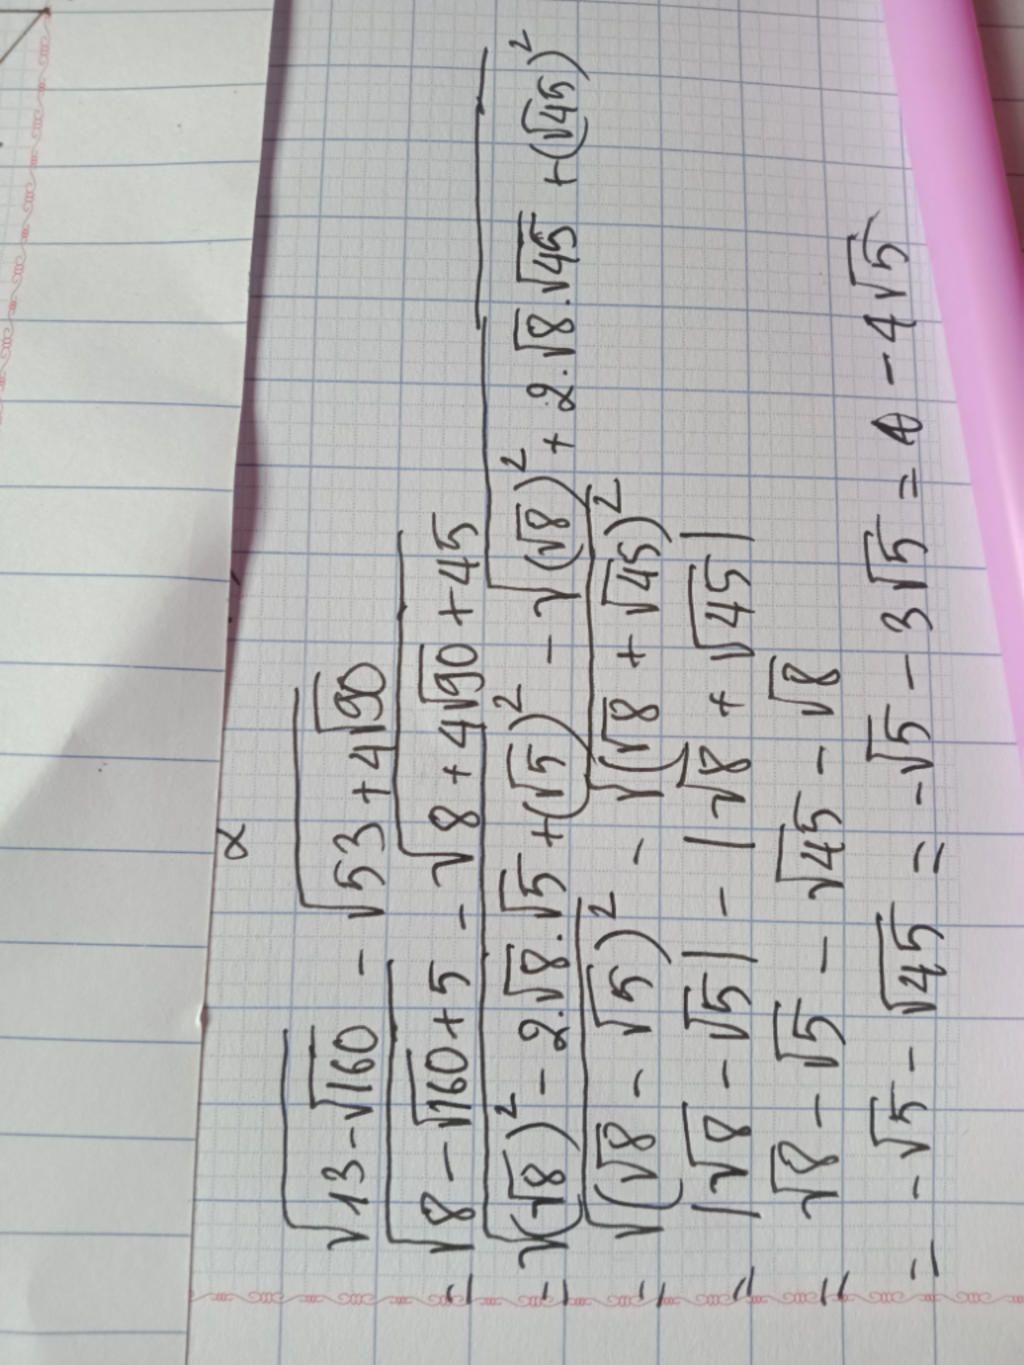 α
√(13-√160) - √(53+4√90)
= √(8-√160+5) - √(8+4√90+45)
= √((√8)² - 2.√8.√5+(√5)²) - √((√8)² + 2.√8.√45 + (√45)²)
= √((√8 - √5)²) - √((√8 + √45)²)
= |√8 - √5| - |√8 + √45|
= √8 - √5 - √45 - √8
= -√5 - √45 = -√5 - 3√5 = - 4√5